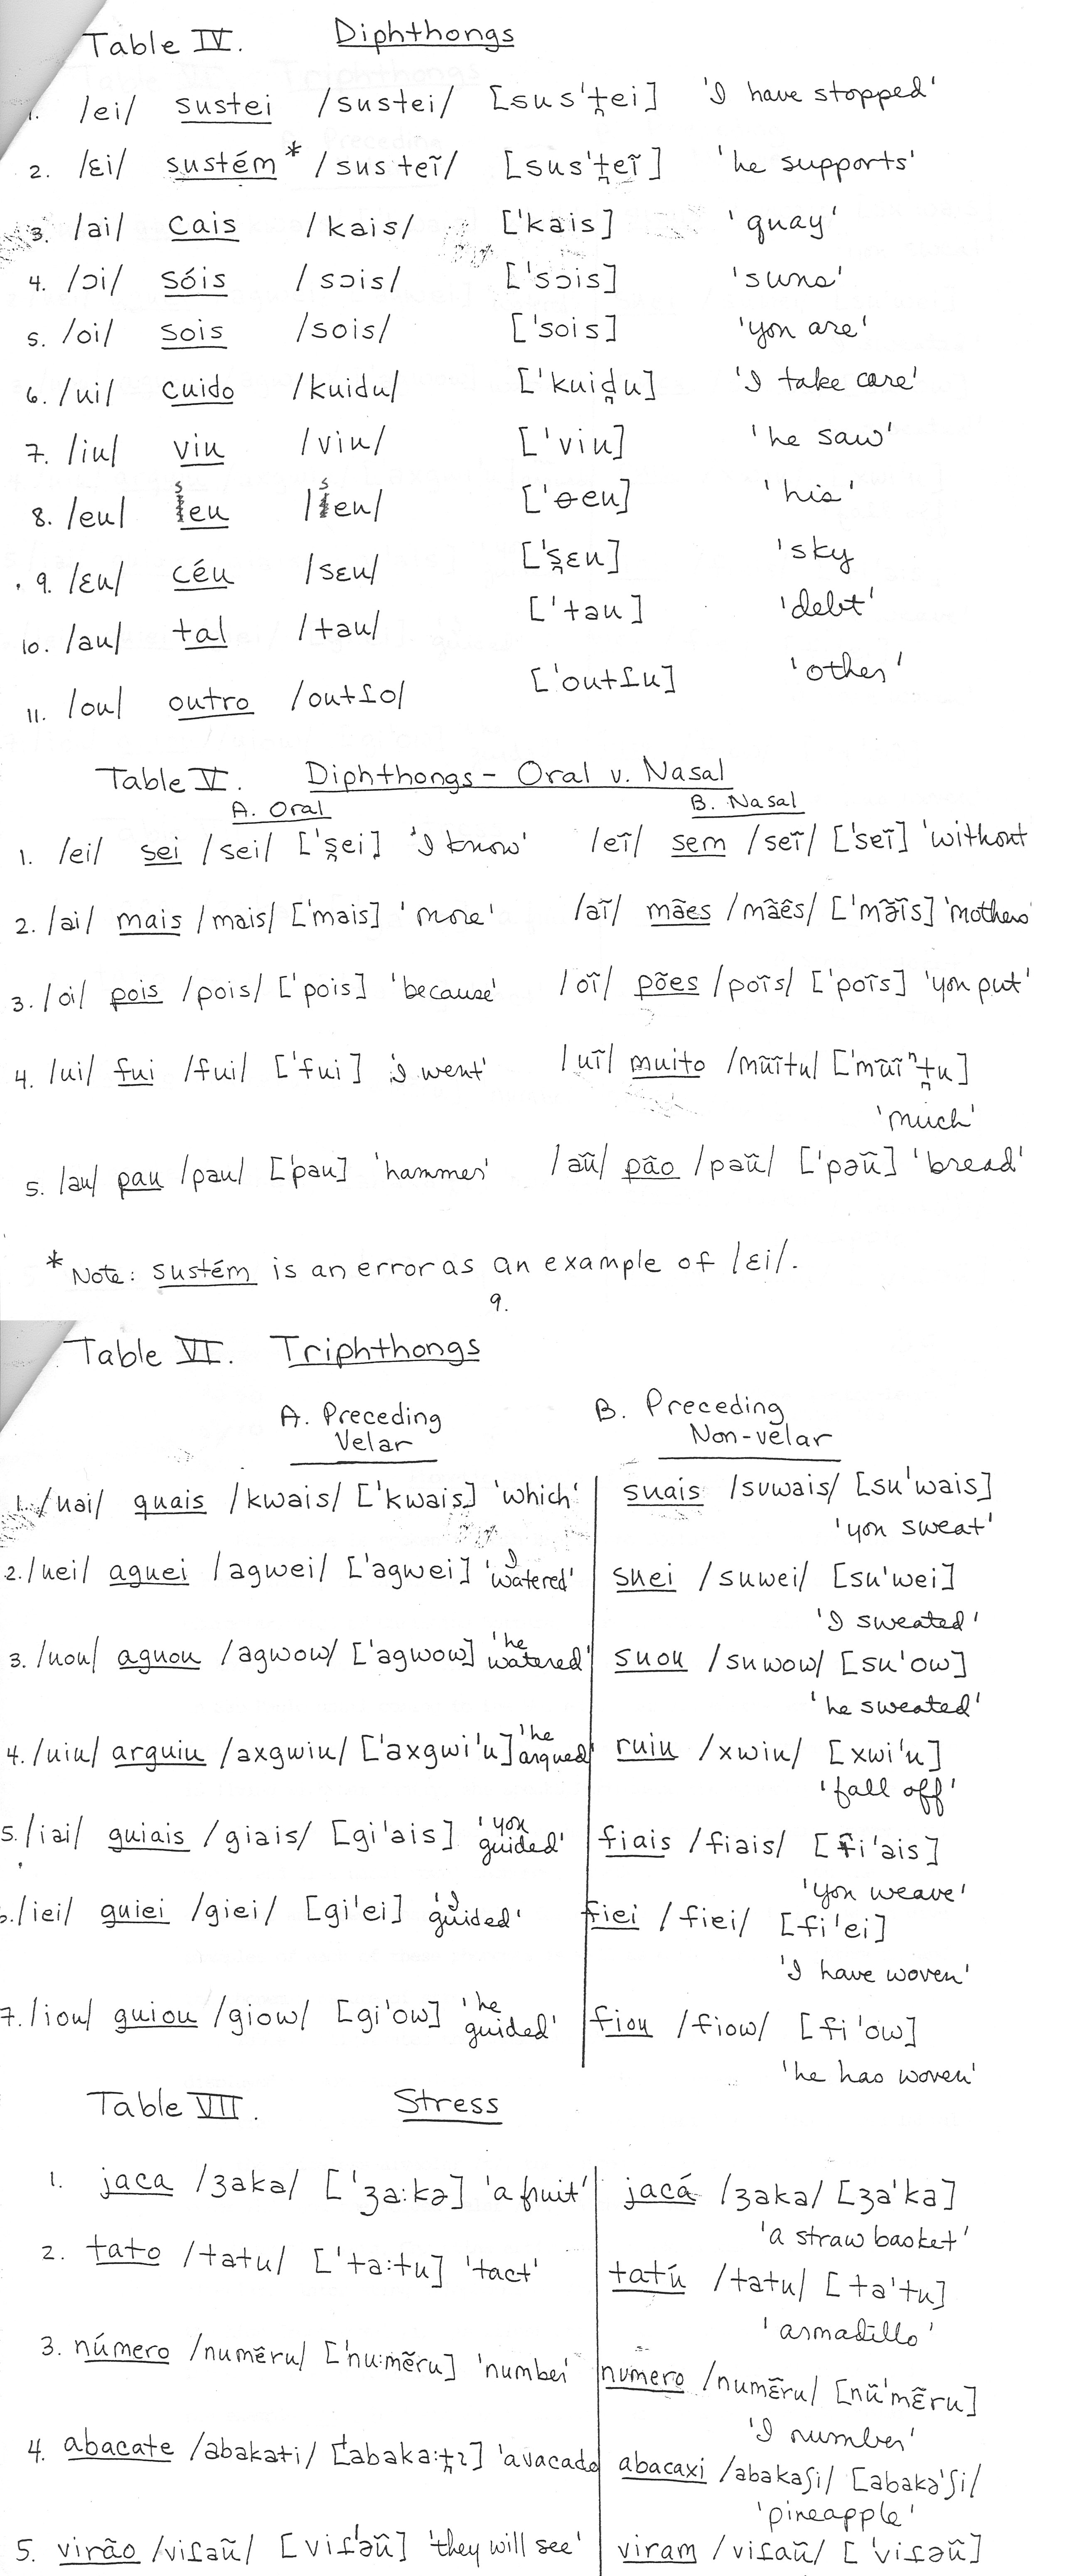 Table IV. Diphthongs
1. /ei/ sustei /sustei/ [sus't̪ei] 'I have stopped'
2. /ɛi/ sustém* /susteĩ/ [sus't̪eĩ] 'he supports'
3. /ai/ cais /kais/ ['kais] 'quay'
4. /ɔi/ sóis /sɔis/ ['sɔis] 'suns'
5. /oi/ sois /sois/ ['sois] 'you are'
6. /ui/ cuido /kuidu/ ['kuid̪u] 'I take care'
7. /iu/ viu /viu/ ['viu] 'he saw'
8. /eu/ seu /seu/ ['seu] 'his'
9. /ɛu/ céu /sɛu/ ['s̪ɛu] 'sky
10. /au/ tal /tau/ ['tau] 'debt'
11. /ou/ outro /outɾo/ ['outɾu] 'other'
Table V. Diphthongs - Oral v. Nasal
A. Oral B. Nasal
1. /ei/ sei /sei/ ['s̪ei] 'I know' /eĩ/ sem /seĩ/ ['seĩ] 'without
2. /ai/ mais /mais/ ['mais] 'more' /aĩ/ mães /mãẽs/ ['mə̃ĩs] 'mothers'
3. /oi/ pois /pois/ ['pois] 'because' /oĩ/ pões /poĩs/ ['poĩs] 'you put'
4. /ui/ fui /fui/ ['fui] 'I went' /uĩ/ muito /mũĩtu/ ['mũĩⁿt̪u]
'much'
5. /au/ pau /pau/ ['pau] 'hammer' /aũ/ pão /paũ/ ['pəũ] 'bread'
*Note: sustém is an error as an example of /ɛi/.
9.
Table VI. Triphthongs
A. Preceding Velar B. Preceding Non-velar
1. /uai/ quais /kwais/ ['kwais] 'which' suais /suwais/ [su'wais]
'you sweat'
2. /uei/ aguei /agwei/ ['agwei] 'I watered' suei /suwei/ [su'wei]
'I sweated'
3. /uou/ aguou /agwow/ ['agwow] 'he watered' suou /suwow/ [su'ow]
'he sweated'
4. /uiu/ arguiu /axgwiu/ ['axgwi'u] 'he argued' ruiu /xwiu/ [xwi'u]
'fall off'
5. /iai/ guiais /giais/ [gi'ais] 'you guided' fiais /fiais/ [fi'ais]
'you weave'
6. /iei/ guiei /giei/ [gi'ei] 'I guided' fiei /fiei/ [fi'ei]
'I have woven'
7. /iou/ guiou /giow/ [gi'ow] 'he guided' fiou /fiow/ [fi'ow]
'he has woven'
Table VII. Stress
1. jaca /ʒakə/ ['ʒa:kə] 'a fruit' jacá /ʒaka/ [ʒa'ka]
'a straw basket'
2. tato /tatu/ ['ta:tu] 'tact' tatú /tatu/ [ta'tu]
'armadillo'
3. número /numẽru/ ['nu:mẽru] 'number' numero /numẽru/ [nũ'mẽru]
'I number'
4. abacate /abakati/ ['abaka:t̪ɪ] 'avacado abacaxi /abakaʃi/ [abakə'ʃi/
'pineapple'
5. virão /viɾaũ/ [viɾ'əũ] 'they will see' viram /viɾaũ/ ['viɾəũ]